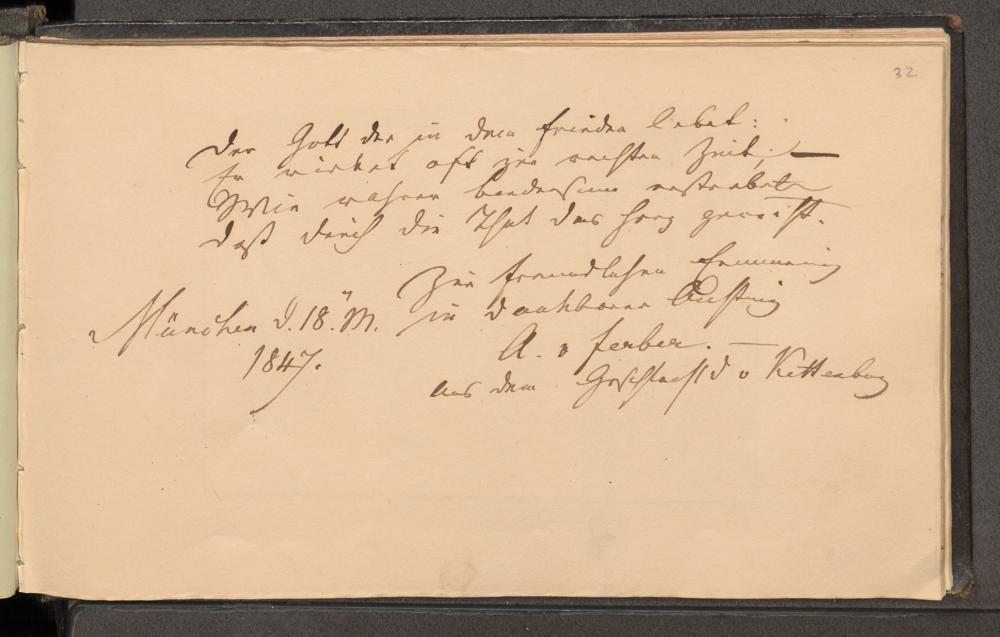 32
Der Gott der in dem Frieden lebet:
Er wirket oft zur rechten Zeit; —
Wie wahrer
Daß durch die That das Herz
Zur freundlichen Erinnerung
in dankbarer Achtung
München d. 18. M.
1847.
A. v Ferber. —
aus dem Geschlecht d v